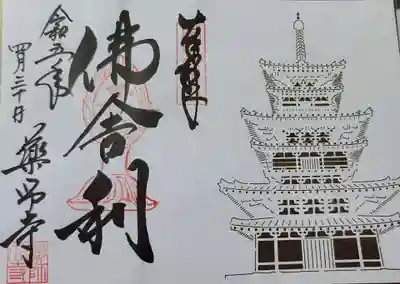 奉拝
佛舎利
令和五年
四月三十日
薬師寺